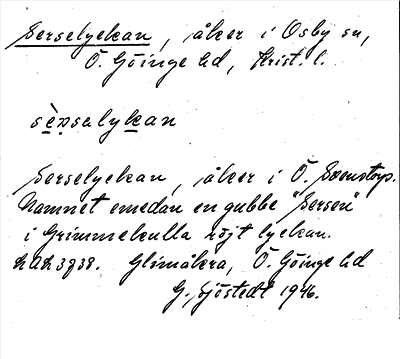 Serselyckan, åker i Osby sn,
Ö. Göinge hd, Krist. l.
sèṇsalykan
Serselyckan, åker i Ö. Svenstorp.
Namnet emedan en gubbe "Sersen"
i Grimmekulla röjt lyckan.
LUA 3938. Glimåkra, Ö. Göinge hd
G. Sjöstedt 1946.